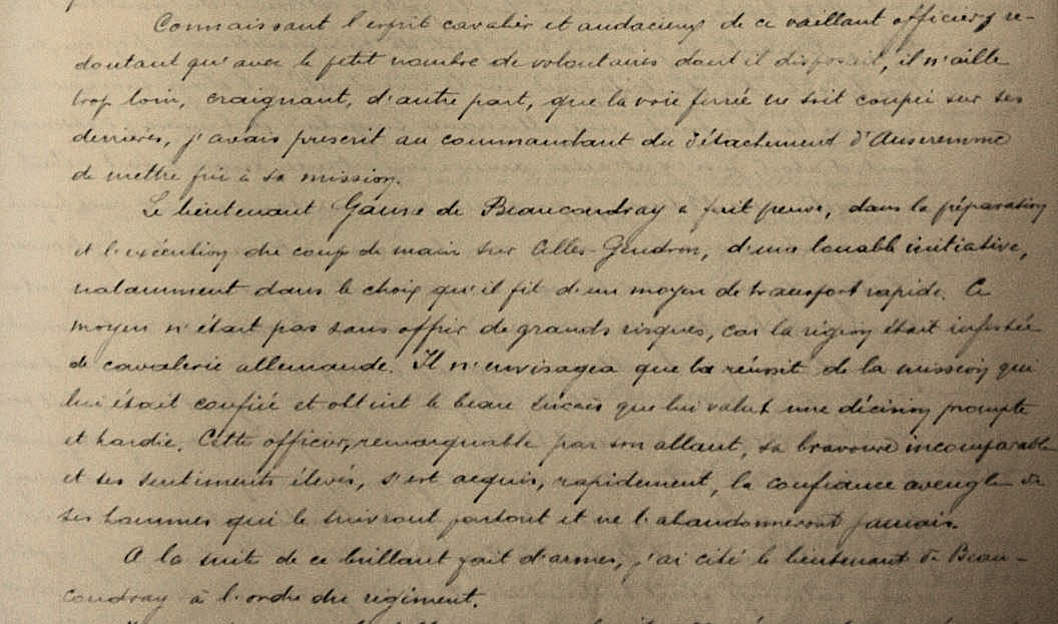 Connaissant l'esprit cavalier et audacieux de ce vaillant officier, re-
doutant qu'avec le petit nombre de volontaires dont il disposait, il n'aille
trop loin, craignant, d'autre part, que la voie ferrée ne soit coupée sur ses
derrières, j'avais prescrit au commandant du détachement d'Anseremme
de mettre fin à sa mission.
Le lieutenant de Beaucoudray a fait preuve, dans la préparation
et l'exécution du coup de main sur Celles-Gendron, d'une louable initiative,
notamment dans le choix qu'il fit d'un moyen de transport rapide. Ce
moyen n'était pas sans offrir de grands risques, car la région était infestée
de cavalerie allemande. Il n'envisagea que la réussite de la mission qui
lui était confiée et obtint le beau succès que lui valut une décision prompte
et hardie. Cette officier, remarquable par son allant, sa bravoure incomparable
et ses sentiments élevés, s'est acquis, rapidement, la confiance aveugle de
ses hommes qui le suivront partout et ne l'abandonneront jamais.
A la suite de ce brillant fait d'armes, j'ai cité le lieutenant de Beau-
coudray à l'ordre du régiment.